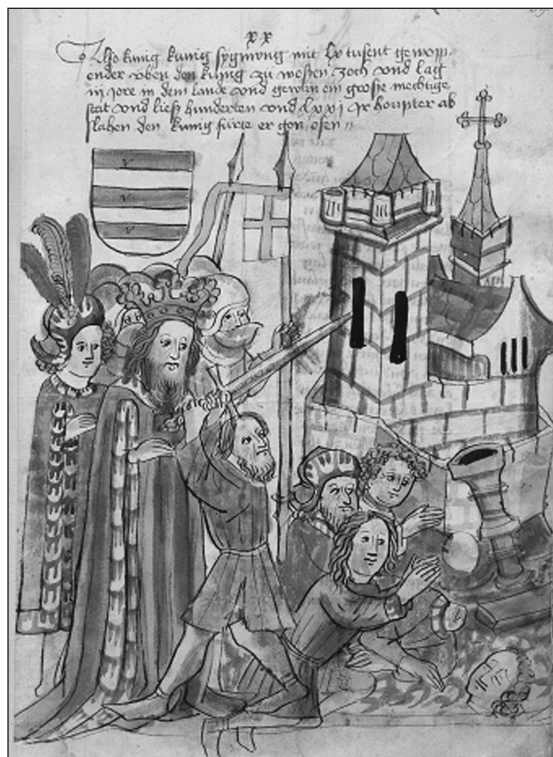 xx
Also kunig kunig sygmong mit lx tusent gewopp-
ender vben den kunig zu wossen zoch vnd lag
iij jore in dem lande vnd gewan ein grosse mechtige
stat vnd ließ hunderten vnd lxxi ir houpter ab
slahen den kunig fürte er gon ofen
v
v
v